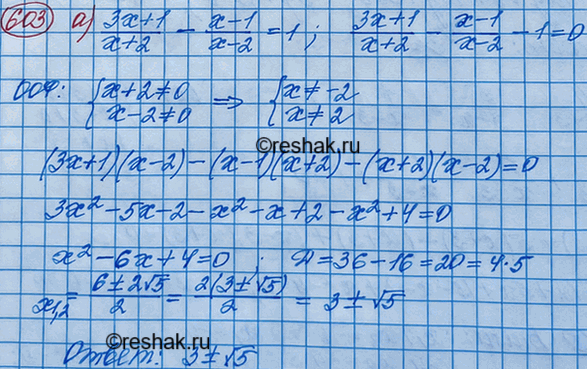 603 а) (3x+1)/(x+2) − (x−1)/(x−2) = 1 ; (3x+1)/(x+2) − (x−1)/(x−2) − 1 = 0
ООФ: { x+2≠0 ⇒ { x≠−2
x−2≠0 x≠2
©reshak.ru
(3x+1)(x−2) − (x−1)(x+2) − (x+2)(x−2) = 0
3x² − 5x − 2 − x² − x + 2 − x² + 4 = 0
x² − 6x + 4 = 0 ; Д = 36 − 16 = 20 = 4·5
x₁,₂ = (6 ± 2√5)/2 = 2(3 ± √5)/2 = 3 ± √5
©reshak.ru
Ответ: 3 ± √5